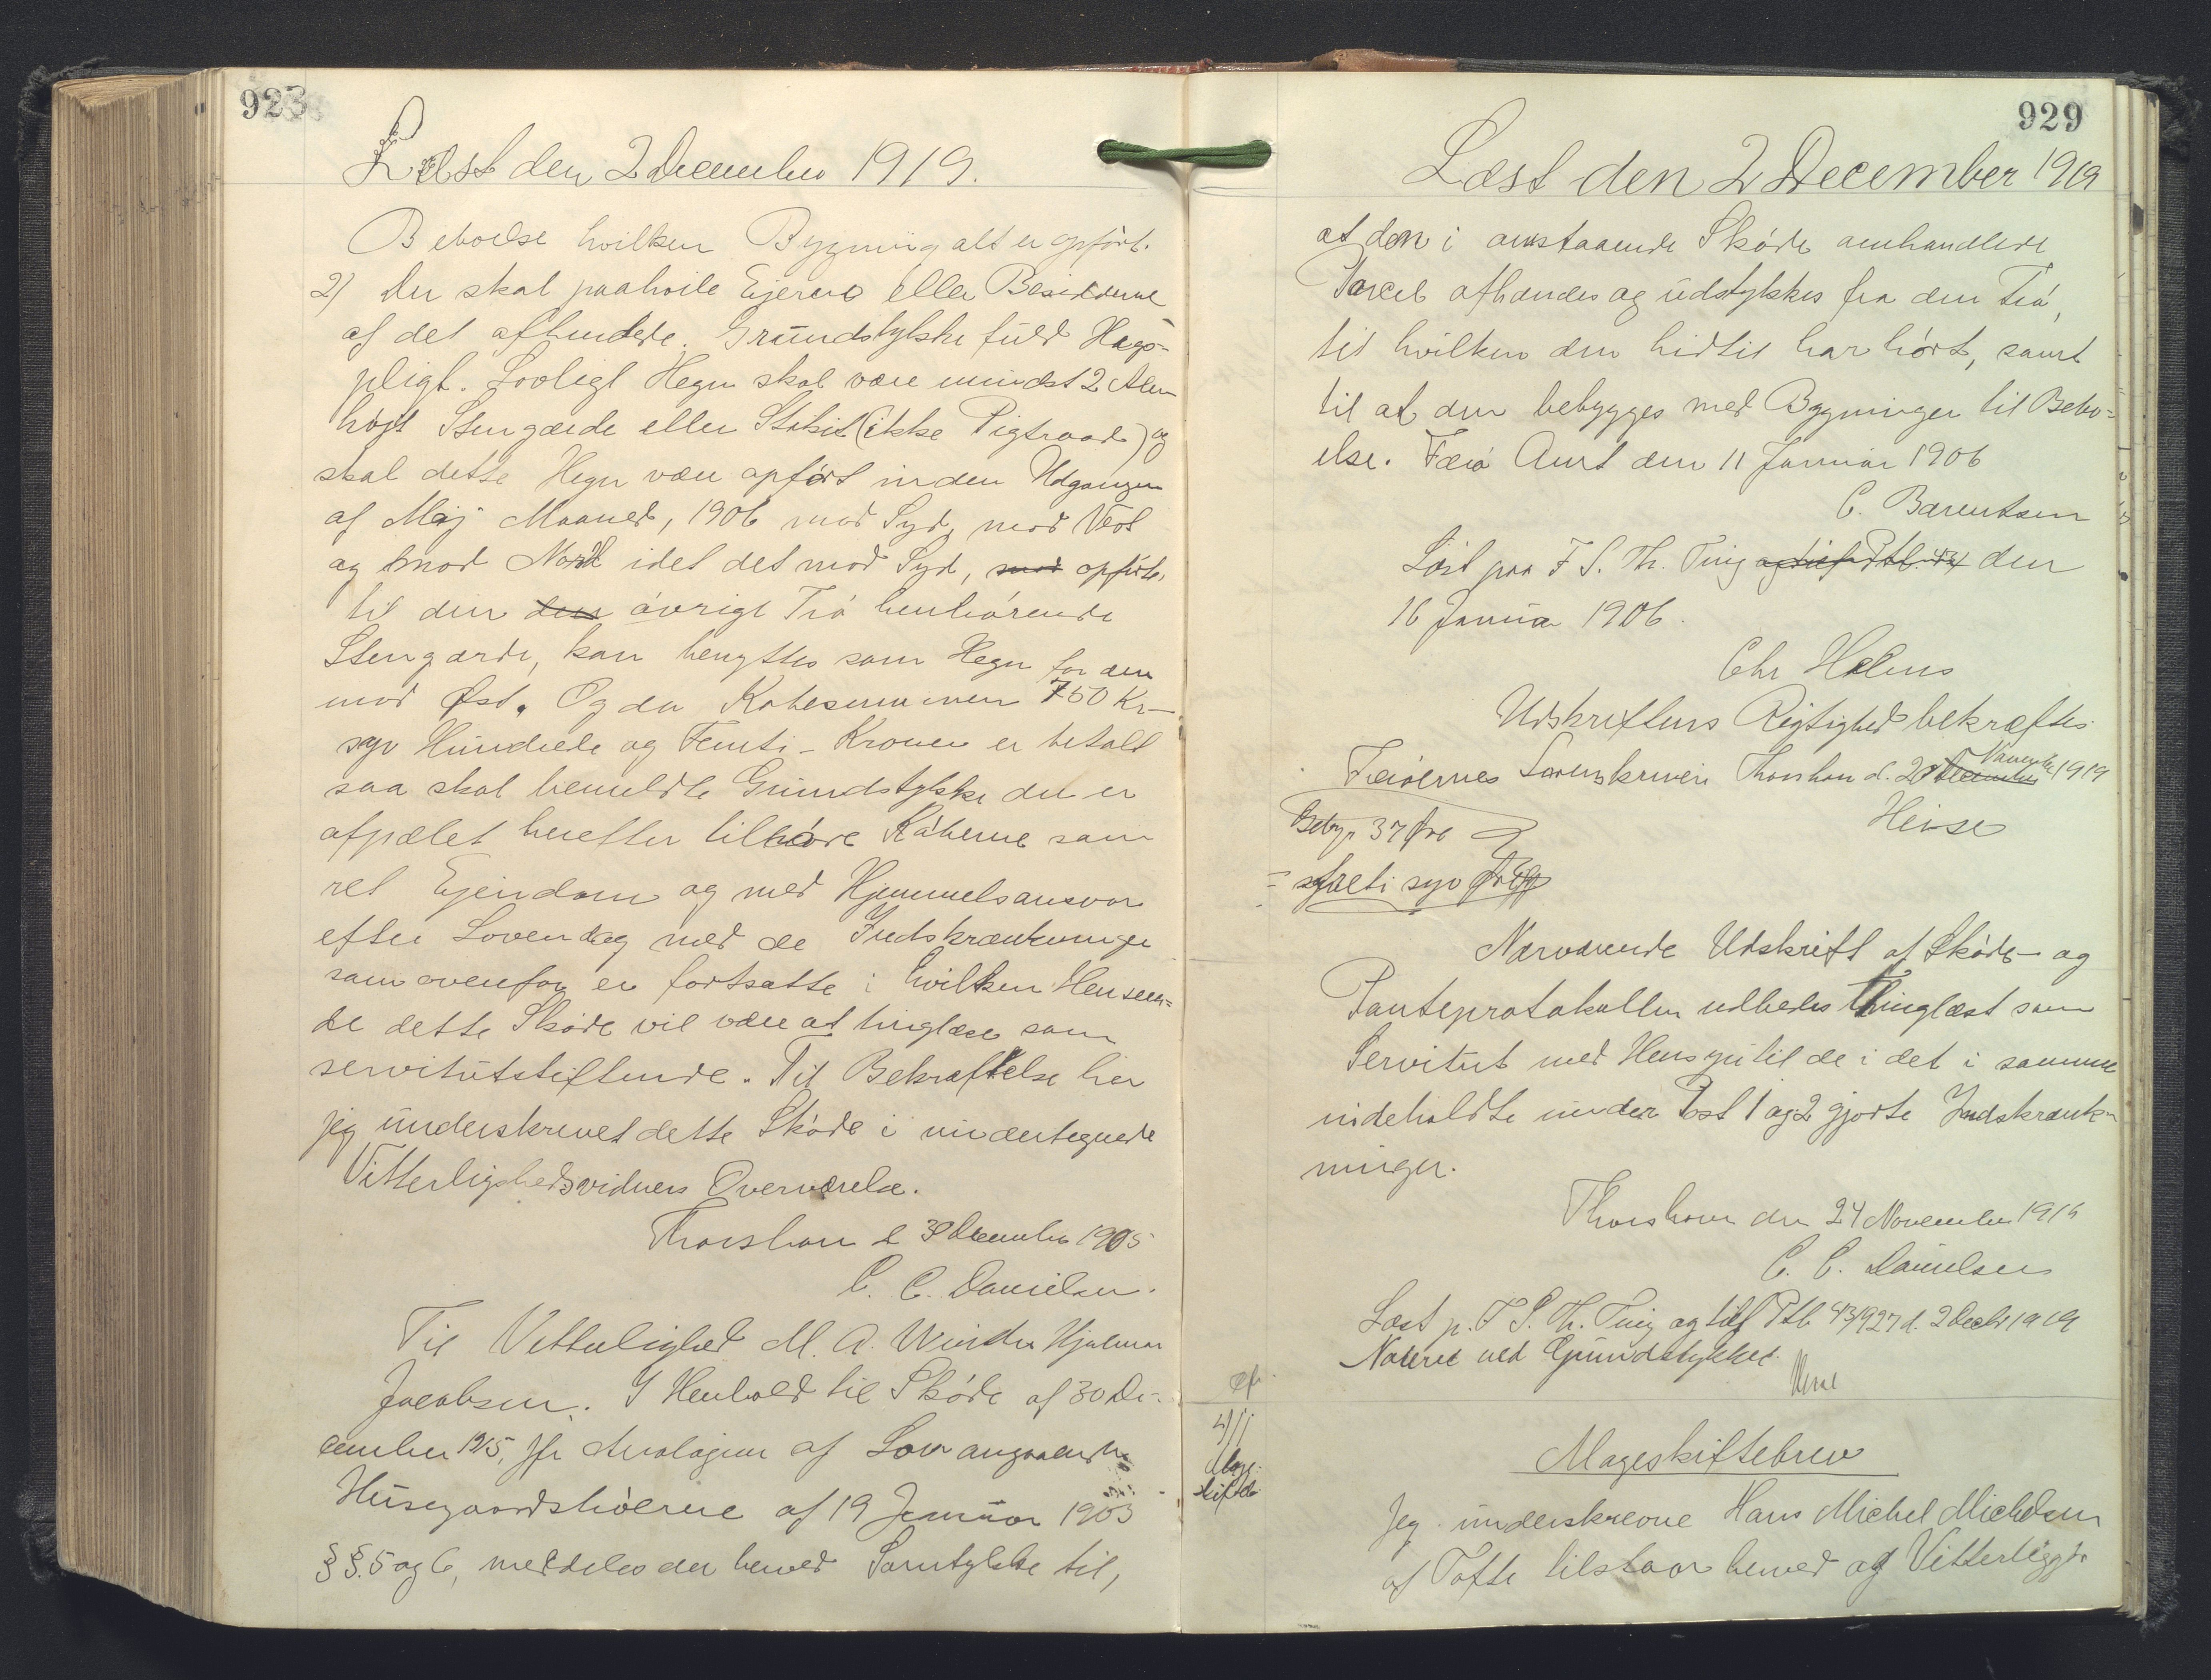 928
Læst den 2 December 1919.
Beboelse hvilken Bygning alt er opført.
2) Der skal paahvile Ejerne eller Besidderne
af det afhendede Grundstykke fuld Hegns-
pligt. Lovligt Hegn skal være mindst 2 Alen
højt Stengærde eller Stakit (ikke Pigtraad) og
skal dette Hegn være opført inden Udgangen
af Maj Maaned, 1906 mod Syd, mod Vest
og mod Nord idet det mod Syd, mod opførte,
til den den øvrige Trø henhørende
Stengærde, kan benyttes som Hegn for den
mod Øst. Og da Købesummen 750 Kr-
syv Hundrede og Femti - Kroner er betalt
saa skal bemeldte Grundstykke der er
afpælet herefter tilhøre Køberne som
ret Ejendom og med Hjemmelsansvar
efter Loven dog med de Indskrænkninger
som ovenfor er fortsatte i hvilken Henseen=
de dette Skøde vil være at tinglæse som
servitutstiftende. Til Bekræftelse har
jeg underskrevet dette Skøde i undertegnede
Vitterligshedsvidners Overværelse.
Thorshavn d 30 December 1905
C. C. Danielsen.
Til Vitterlighed M. A. Winther Hjalmar
Jacobsen. I Henhold til Skøde af 30 De-
cember 1905, jfr Analogien af Lov angaaende
Husegaardskøerne af 19 Januar 1903
§§. 5 og 6, meddeles der herved Samtykke til,
929
Læst den 2 December 1919
at den i omstaaende Skøde omhandlede
Parcel afhændes og udstykkes fra den Trø,
til hvilken den hidtil har hørt, samt
til at den bebygges med Bygninger til Bebo=
else. Færø Amt den 11 Januar 1906
C. Bærentsen
Læst paa F S. Th. Ting og tilf Ptl. 43/ den
16 Januar 1906.
Chr Holms
Udskriftens Rigtighed bekræftes.
Færøernes Sorenskriveri Thorshavn d. 20 December November 1919
Heise
Betyr 37 Øre
= syv
Nærværende Udskrift af Skøde- og
Panteprotokollen udbedes thinglæst som
Servitut med Hensyn til de i det i samme
indeholdte under Post 1 og 2 gjorte Indskrænk-
ninger.
Thorshavn den 24 November 1919
C. C. Danielsen
Læst p. F S. Th. Ting og tilf Ptl. 43/927 d. 2 Decbr 1919
Noteret ved Grundstykket.
Heise
Mage-
skifteb.
Mageskiftebrev
Jeg underskrevne Hans Michel Michelsen
af Tofte tilstaar herved og Vitterliggør